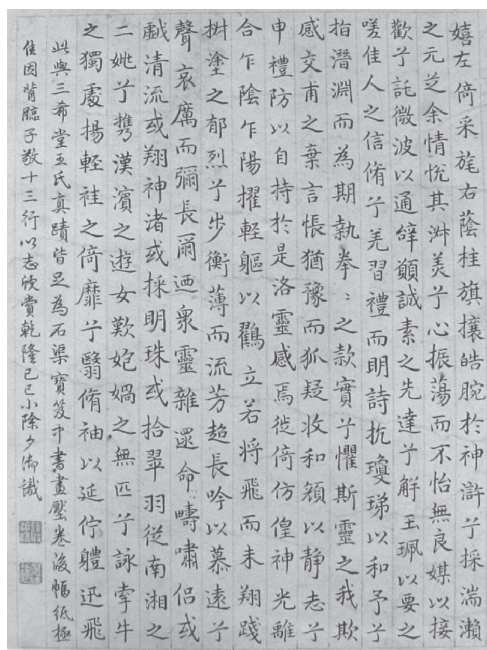 嬉左倚采旄右蔭桂旗攘皓腕於神滸兮採湍瀨
之元芝余情悅其淑美兮心振蕩而不怡無良媒以接
歡兮託微波以通辭願誠素之先達兮解玉珮以要之
嗟佳人之信脩兮羌習禮而明詩抗瓊珶以和予兮
指潛淵而為期執拳:之款實兮懼斯靈之我欺
感交甫之棄言悵猶豫而狐疑收和顏以靜志兮
申禮防以自持於是洛靈感焉徙倚仿偟神光離
合乍陰乍陽擢輕軀以鶴立若將飛而未翔踐
椒塗之郁烈兮步衡薄而流芳超長吟以慕遠兮
聲哀厲而彌長爾迺衆靈雜遝命疇嘯侶或
戲清流或翔神渚或採明珠或拾翠羽從南湘之
二姚兮攜漢濱之遊女歎匏媧之無匹兮詠牽牛
之獨處揚輕袿之倚靡兮翳脩袖以延佇體迅飛
此與三希堂王氏真蹟皆足為石渠寶笈中書畫壓卷後幅紙極
佳因背臨子敬十三行以志欣賞乾隆己巳小除夕御識